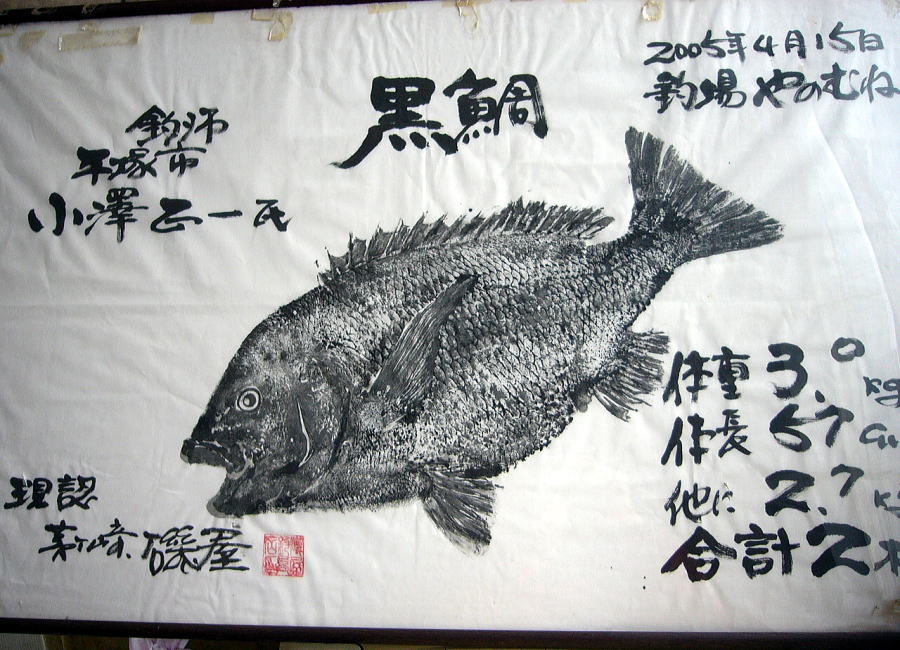 2005年4月15日
釣場 やのむね
黒鯛
釣師
平塚市
小澤正一氏
体重 3.0 kg
体長 57 cm
他に 2.7 kg
合計 2
現認
茅ヶ崎 礒屋